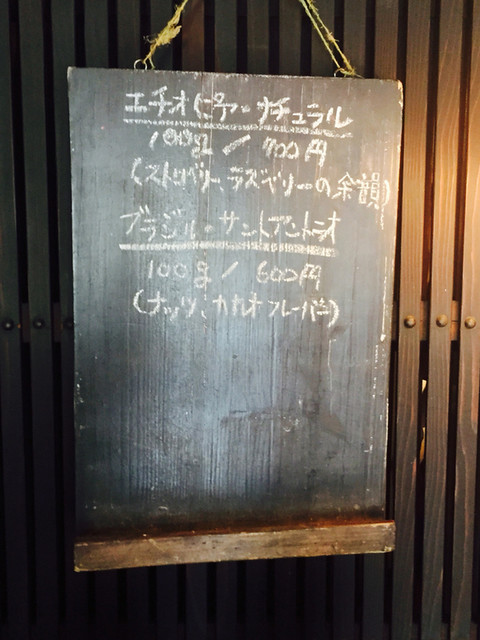 エチオピア・ナチュラル
100g / 700円
(ストロベリー、ラズベリーの余韻)
ブラジル・サントアントニオ
100g / 600円
(ナッツ、カカオフレーバー)